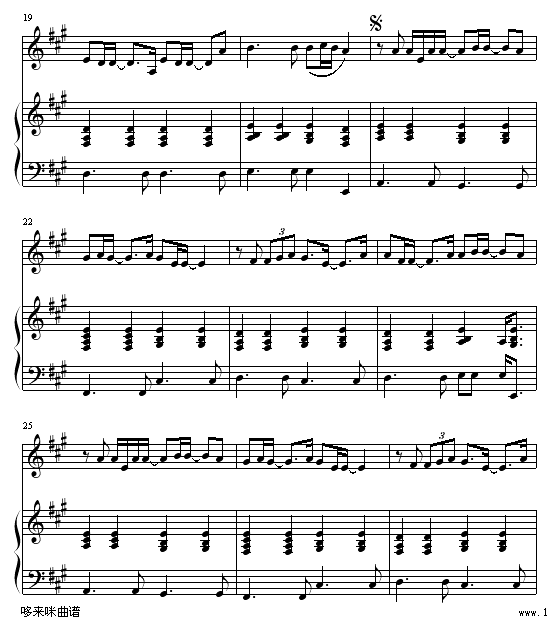 19
22
3
25
3
哆来咪曲谱
www.1